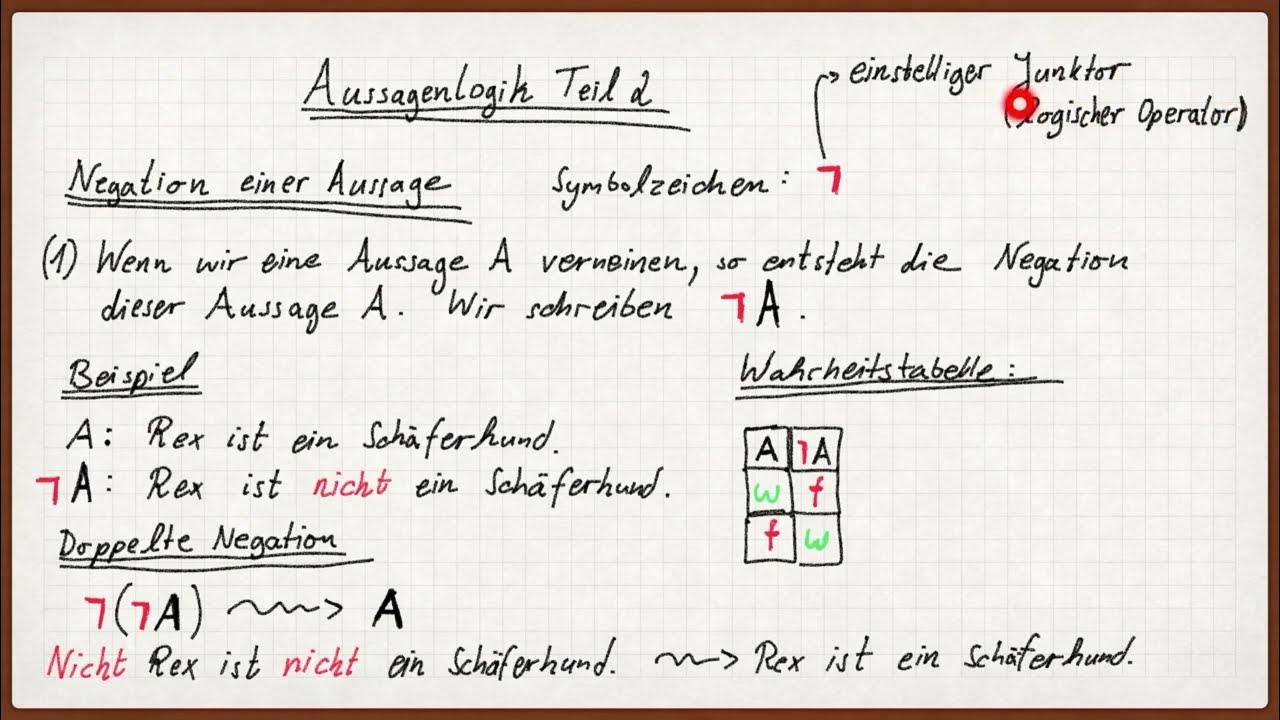 Aussagenlogik Teil 2
einstelliger Junktor
(Logischer Operator)
Negation einer Aussage Symbolzeichen: ¬
(1) Wenn wir eine Aussage A verneinen, so entsteht die Negation
dieser Aussage A. Wir schreiben ¬A.
Beispiel
A: Rex ist ein Schäferhund.
¬A: Rex ist nicht ein Schäferhund.
Wahrheitstabelle:
A ¬A
w f
f w
Doppelte Negation
¬(¬A) ⇝ A
Nicht Rex ist nicht ein Schäferhund. ⇝ Rex ist ein Schäferhund.